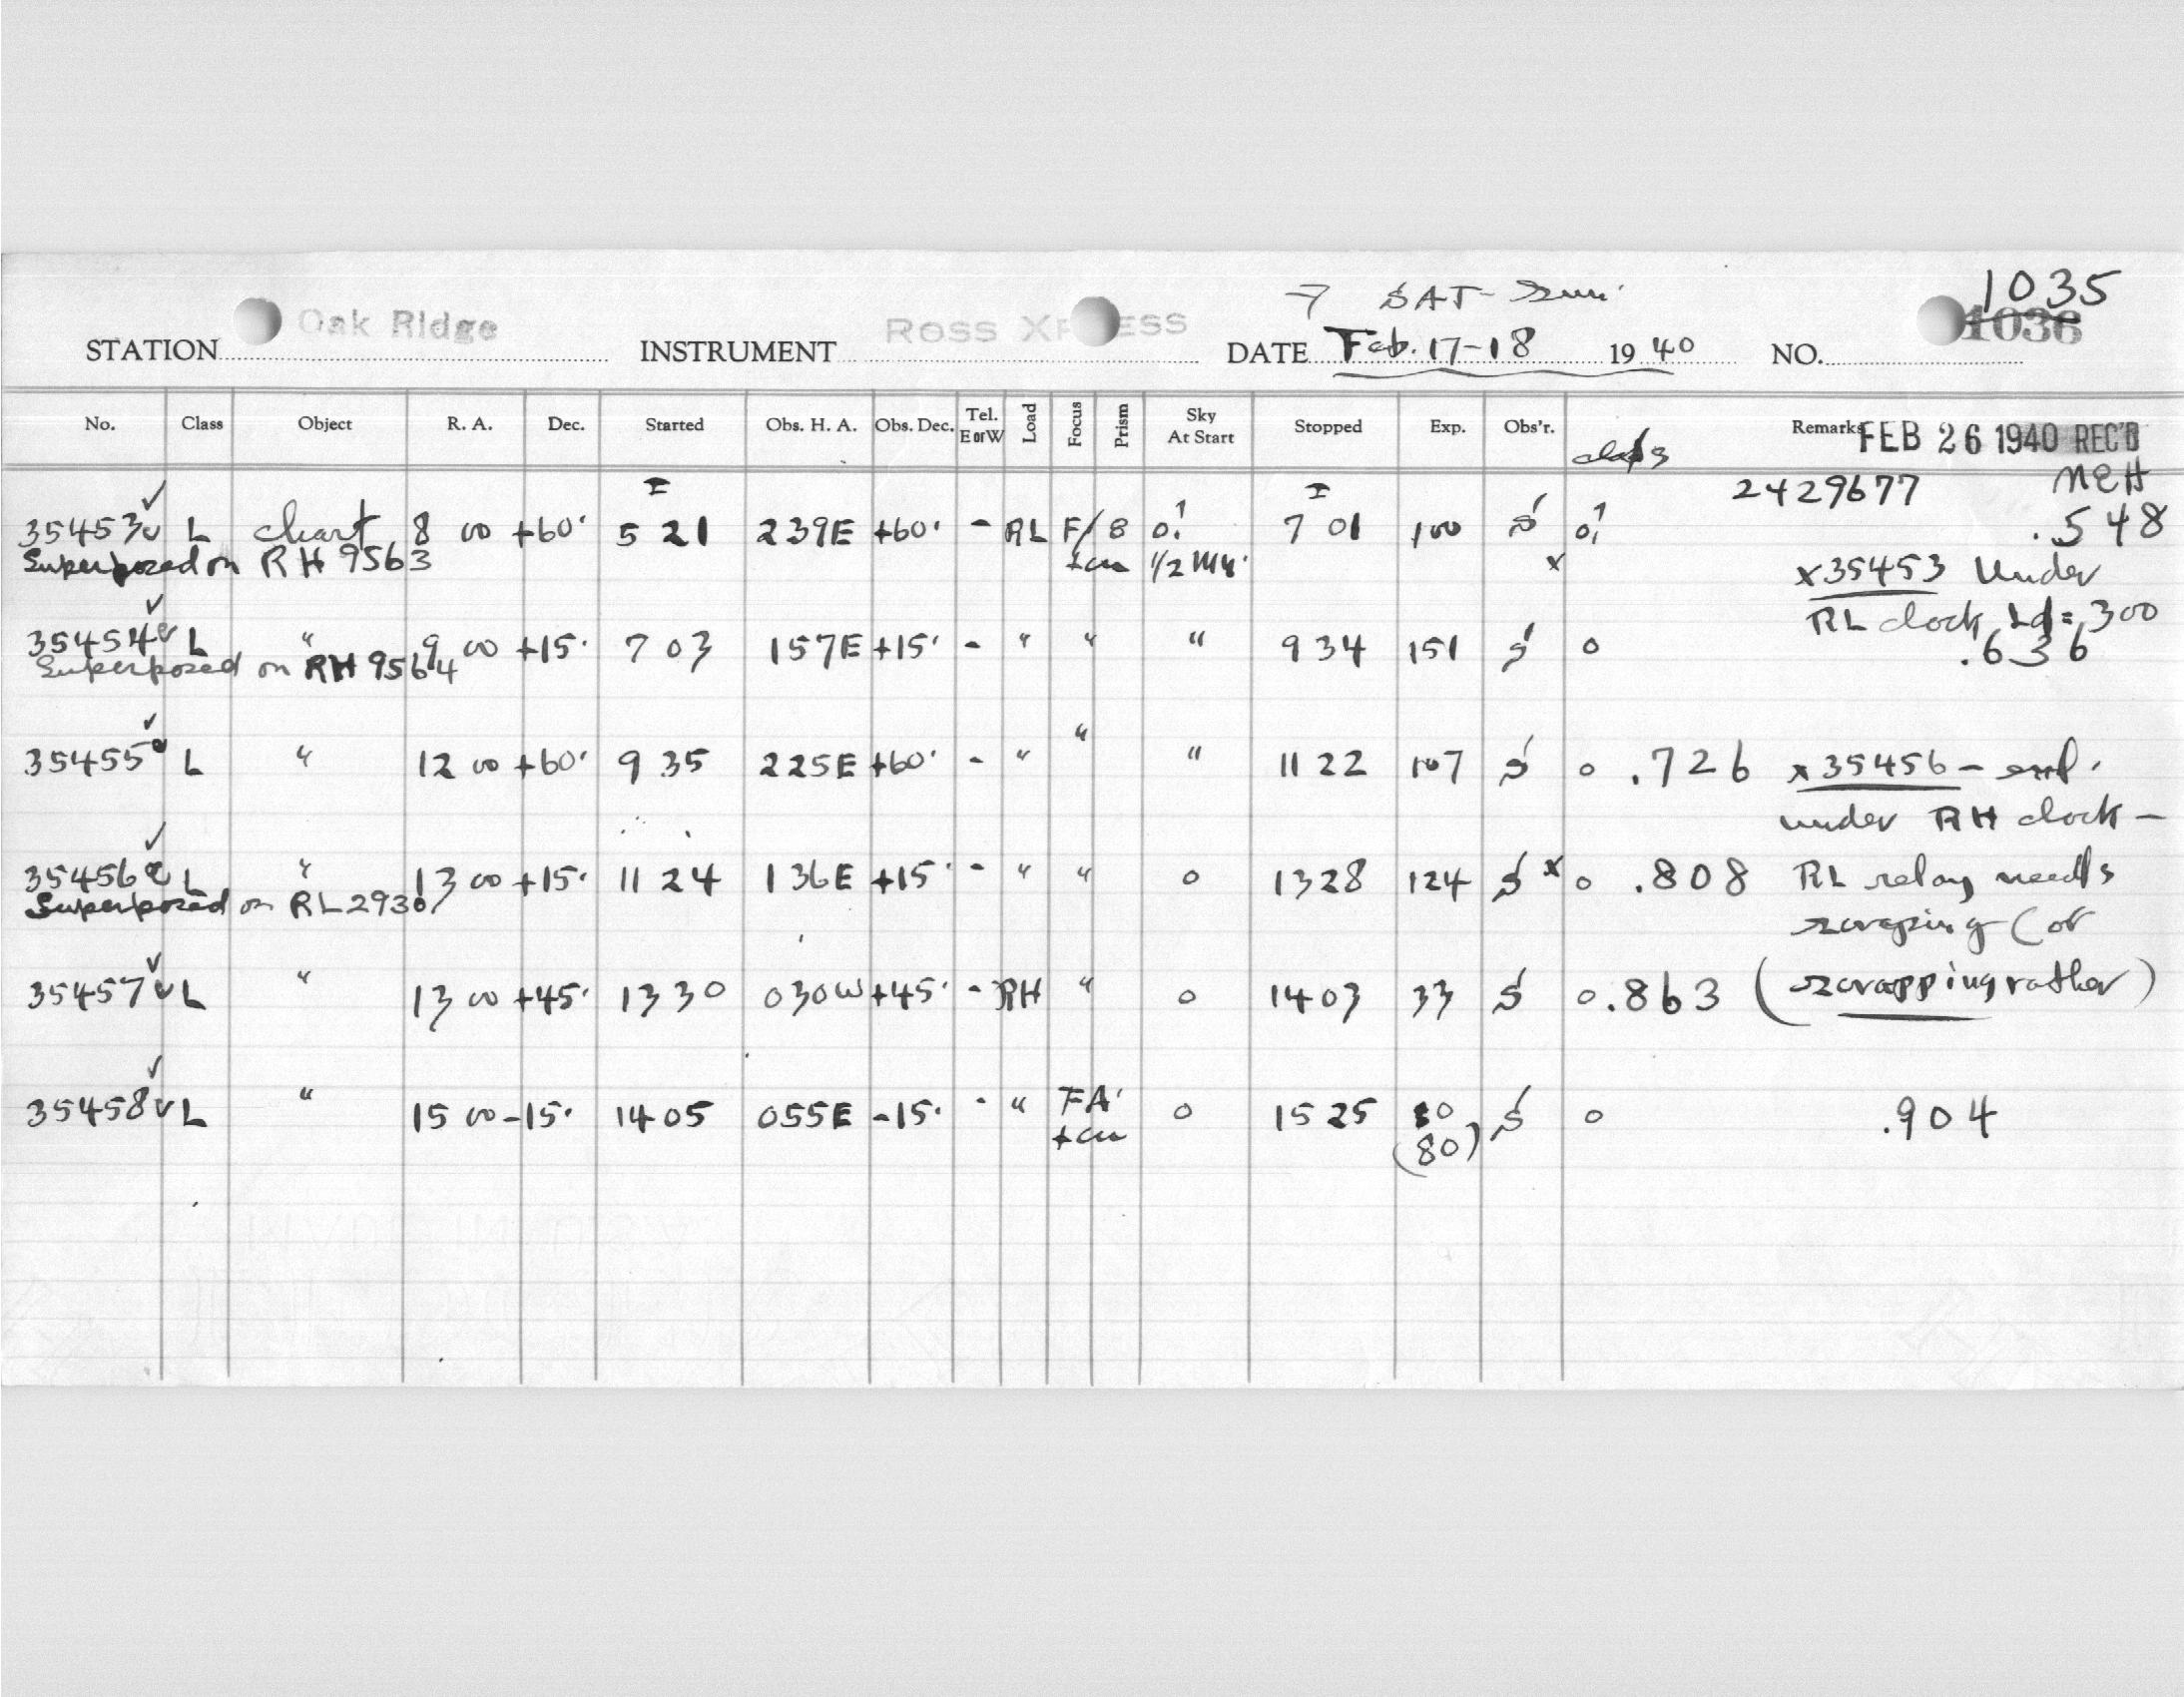 1035
7 SAT-Sun.
STATION Oak Ridge INSTRUMENT ROSS XPRESS DATE Feb. 17-18 1940 NO. 1036
No. Class Object R. A. Dec. Started Obs. H. A. Obs. Dec. Tel. E or W Load Focus Prism Sky At Start Stopped Exp. Obs'r. Remarks FEB 26 1940 REC'D
2429677 MEH
35453 L chart 8 00 +60° 5 21 239E +60° - RL F/8 0! 7 01 100 S 0! .548
Superposed on RH 9563 1/2 x x35453 Under
RL clock, Ld=300
35454 L " 9 00 +15° 7 03 157E +15° - " " " 9 34 151 S 0 .636
Superposed on RH 9564
35455 L " 12 00 +60° 9 35 225E +60° - " " " 11 22 107 S 0 .726 x35456 -
under RH clock -
35456 L " 13 00 +15° 11 24 136E +15° - " " 0 13 28 124 S x 0 .808 RL relay needs
Superposed on RL2930 scraping (or
35457 L " 13 00 +45° 13 30 030W +45° - RH " 0 14 03 33 S 0 .863 (scrapping rather)
35458 L " 15 00 -15° 14 05 055E -15° - " FA 0 15 25 80 S 0 .904
(80)